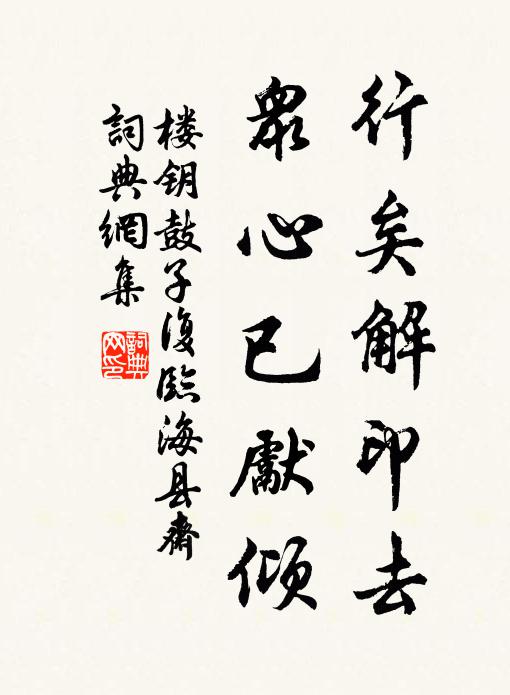 行矣解印去
衆心已獻傾
楼钥鼓子復臨海县齋
詞典網集
詞典网印